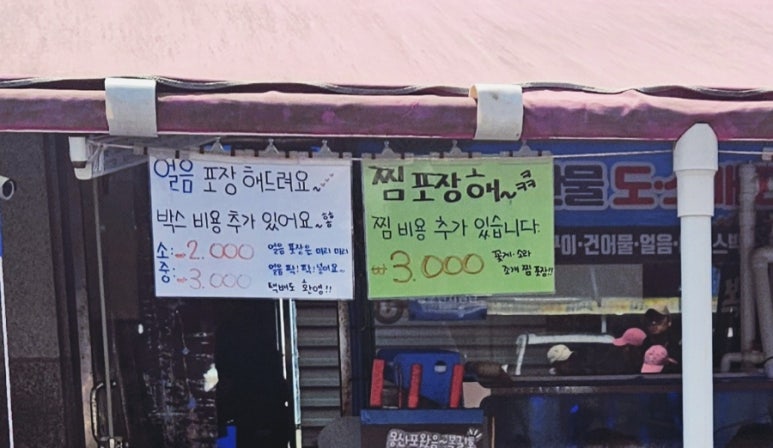 얼음 포장 해드려요~
박스 비용 추가 있어요~
소:→2.000
중:→3.000
얼음 포장은 미리 미리
얼음 팍! 팍! 넣어요~
택배도 환영!!
찜 포장해~ 콕
찜 비용 추가 있습니다.
₩3.000
꽃게·소라
조개 찜 포장!!
산물 도·소매
구이·건어물·얼음·
스박